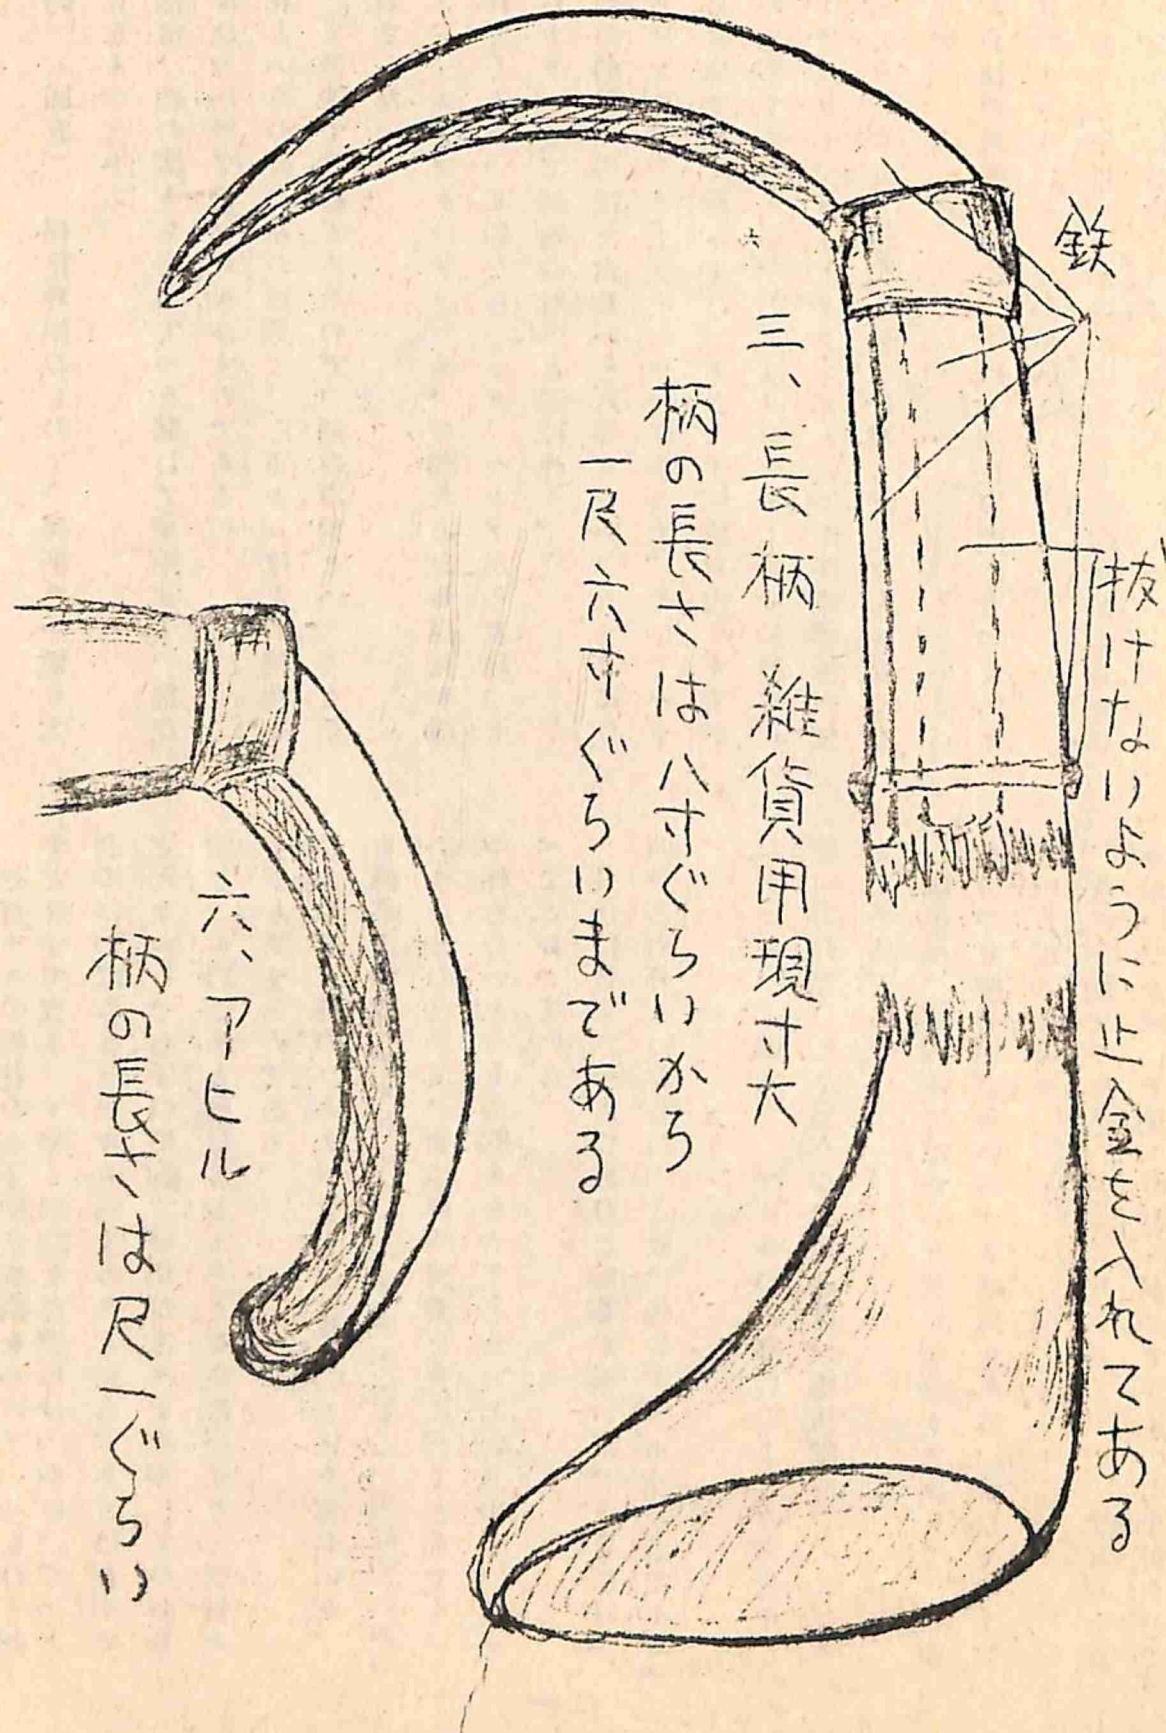 鉄
抜けないように止金を入れてある
三、長柄 雑貨用現寸大
柄の長さは八寸ぐらいから
一尺六寸ぐらいまである
六、アヒル
柄の長さは尺一ぐらい